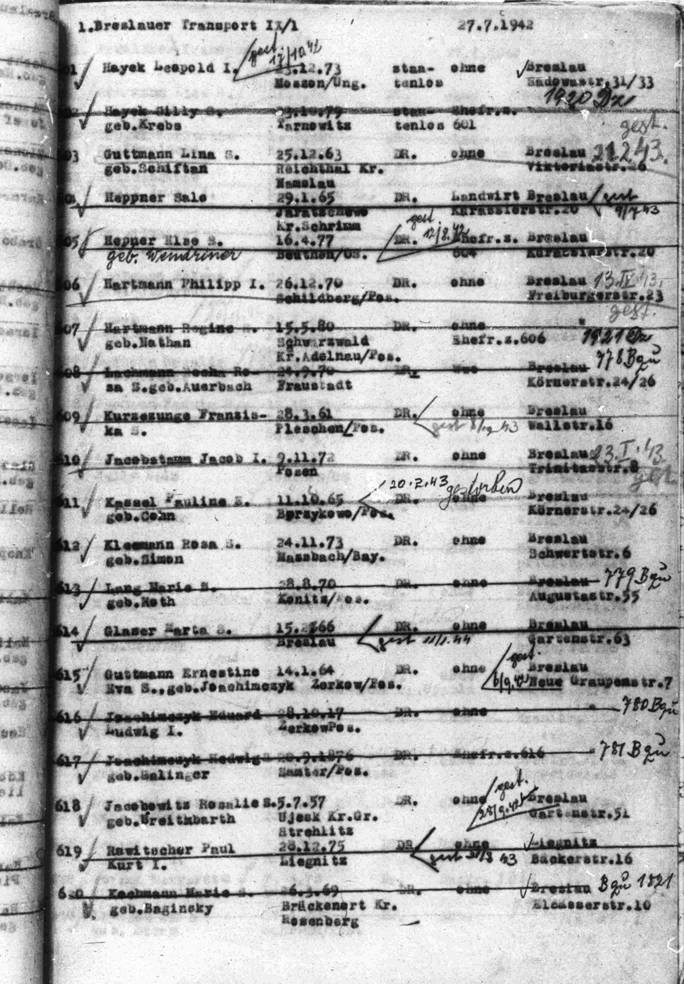 1.Breslauer Transport II/1 27.7.1942
gest.
17/10.42
Hayek Leopold I. 12.73 staa- ohne Breslau
Moszon/Ung. tenlos Sadowastr.31/33
1920 Dz
Hayek Cilly S. .79 staa- Ehefr.z. gest.
geb.Krebs Tarnowitz tenlos 601
603 Guttmann Lina S. 25.12.63 DR. ohne Breslau 2.43.
geb.Schiftan Reichthal Kr. Viktoriastr.
Namslau
Heppner Salo 29.1.65 DR. Landwirt Breslau gest
Jaratschewo Kürassierstr.20 9/7 43
Kr.Schrimm gest
605 Hepner Else S. 16.4.77 DR. Ehefr.z. Breslau
geb. Wendriner Beuthen/OS. 604 Kürassierstr.20
606 Hartmann Philipp I. 26.12.70 DR. ohne Breslau 13.IV.43.
Schildberg/Pos. Freiburgerstr.23
gest.
607 Hartmann Regine S. 15.5.80 DR. ohne " 1921 Dz
geb.Nathan Schwarzwald Ehefr.z.606
Kr.Adelnau/Pos. 778 Bqu
608 Lachmann Rocha Ro- .9.70 DR. Breslau
sa S.geb.Auerbach Fraustadt Körnerstr.24/26
609 Kurzezunge Franzis- 28.3.61 DR. ohne Breslau
ka S. Pleschen/Pos. gest 43 Wallstr.16
610 Jacobstamm Jacob I. 9.11.72 DR. ohne Breslau 23.I.43.
Posen Trinitasstr.8 gest.
20.7.43 gestorben
611 Kassel Pauline S. 11.10.65 DR. ohne Breslau
geb.Cohn Borzykowo/Pos. Körnerstr.24/26
612 Kleemann Rosa S. 24.11.73 DR. ohne Breslau
geb.Simon Massbach/Bay. Schwertstr.6
613 Lang Marie S. 28.8.70 DR. ohne Breslau 779 Bqu
geb.Roth Konitz/Pos. Augustastr.55
614 Glaser Marta S. 15.2.66 DR. ohne Breslau
Breslau gest 11/1.44 Gartenstr.63
gest.
615 Guttmann Ernestine 14.1.64 DR. ohne Breslau
Eva S.,geb.Joachimczyk Zerkow/Pos. 6/9.42 Neue Graupenstr.7
616 Joachimczyk Eduard 28.10.17 DR. ohne " 780 Bqu
Ludwig I. ZerkowPos.
617 Joachimczyk Hedwig S .9.1876 DR. Ehefr.z.616 " 781 Bqu
geb.Salinger Samter/Pos.
gest.
618 Jacobowitz Rosalie S.5.7.57 DR. ohne Breslau
geb.Breithbarth Ujesk Kr.Gr. Gartenstr.51
Strehlitz
619 Rawitscher Paul 28.12.75 DR ohne Liegnitz
Kurt I. Liegnitz gest 43 Bäckerstr.16
620 Kochmann Marie S. 26.3.69 DR. ohne Breslau Bqu 1821
geb.Baginsky Brückenort Kr. Elsasserstr.10
Rosenberg